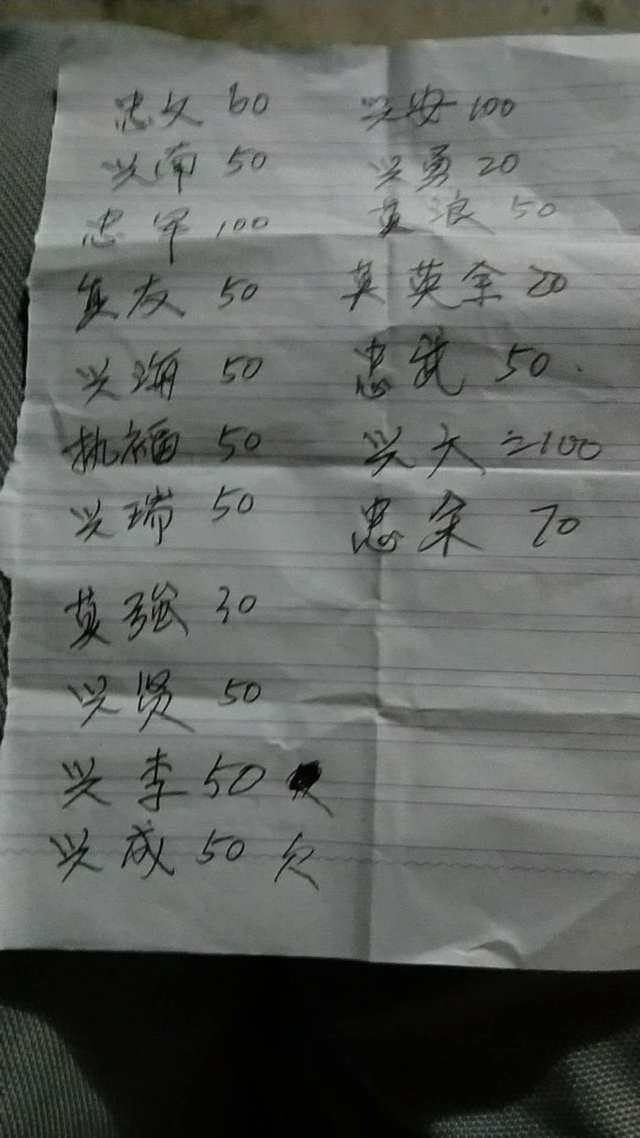 忠文 60
兴南 50
忠军 100
友 50
兴海 50
执福 50
兴瑞 50
莫强 30
兴贤 50
兴李 50
兴成 50 欠
兴安 100
兴勇 20
莫浪 50
英余 20
忠先 50
兴大 100
忠余 70